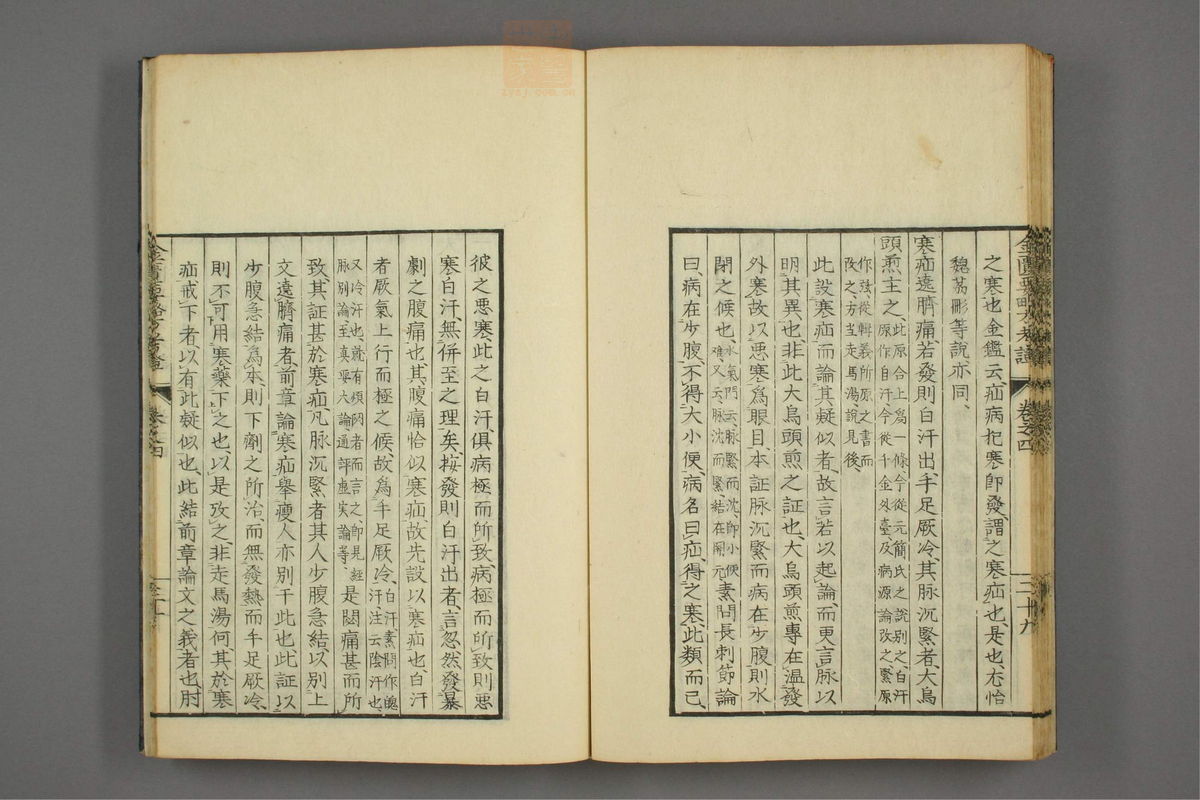 之寒也金鑑云疝病犯寒即發謂之寒疝也是也尤怡
魏荔彤等說亦同、
寒疝遶臍痛、若發則白汗出、手足厥冷、其脉沉緊者、大烏
頭煎主之、此原合上爲一條、今從元簡氏之說別之、白汗
原作自汗今從千金外臺及病源論改之緊原
作弦從輯義所原之書而
改之方主走馬湯說見後、
此設寒疝而論其疑似者、故言若以起論而更言脉以
明其異也、非此大烏頭煎之証也、大烏頭煎專在溫發
外寒故以惡寒爲眼目、本証脉沉緊而病在少腹則水
閉之候也、水氣門云、脉緊而沈、即小便
難、又云、脉沈而緊、結在關元、素問長刺節論
曰、病在少腹、不得大小便、病名曰疝、得之寒、此類而已、
金匱要略方考證
卷之四
二十九
彼之惡寒、此之白汗、俱病極而所致、病極而所致則惡
寒白汗無併至之理矣、按發則白汗出者、言忽然發暴
劇之腹痛也、其腹痛恰似寒疝、故先設以寒疝也、白汗
者厥氣上行而極之候、故爲手足厥冷、白汗素問作魄
汗、注云陰汗也、
又冷汗也、
脉別論至真要大論通評虛実論等、是悶痛甚而所
致、其証甚於寒疝、凡脉沉緊者其人少腹急結、以別上
文遶臍痛者、前章論寒疝舉瘦人亦別于此也、此証以
少腹急結爲本、則下劑之所治、而無發熱而手足厥冷、
則不可用寒藥下之也、以是攷之、非走馬湯何、其於寒
疝戒下者、以有此疑似也、此結前章論文之義者也、肘
卷之四